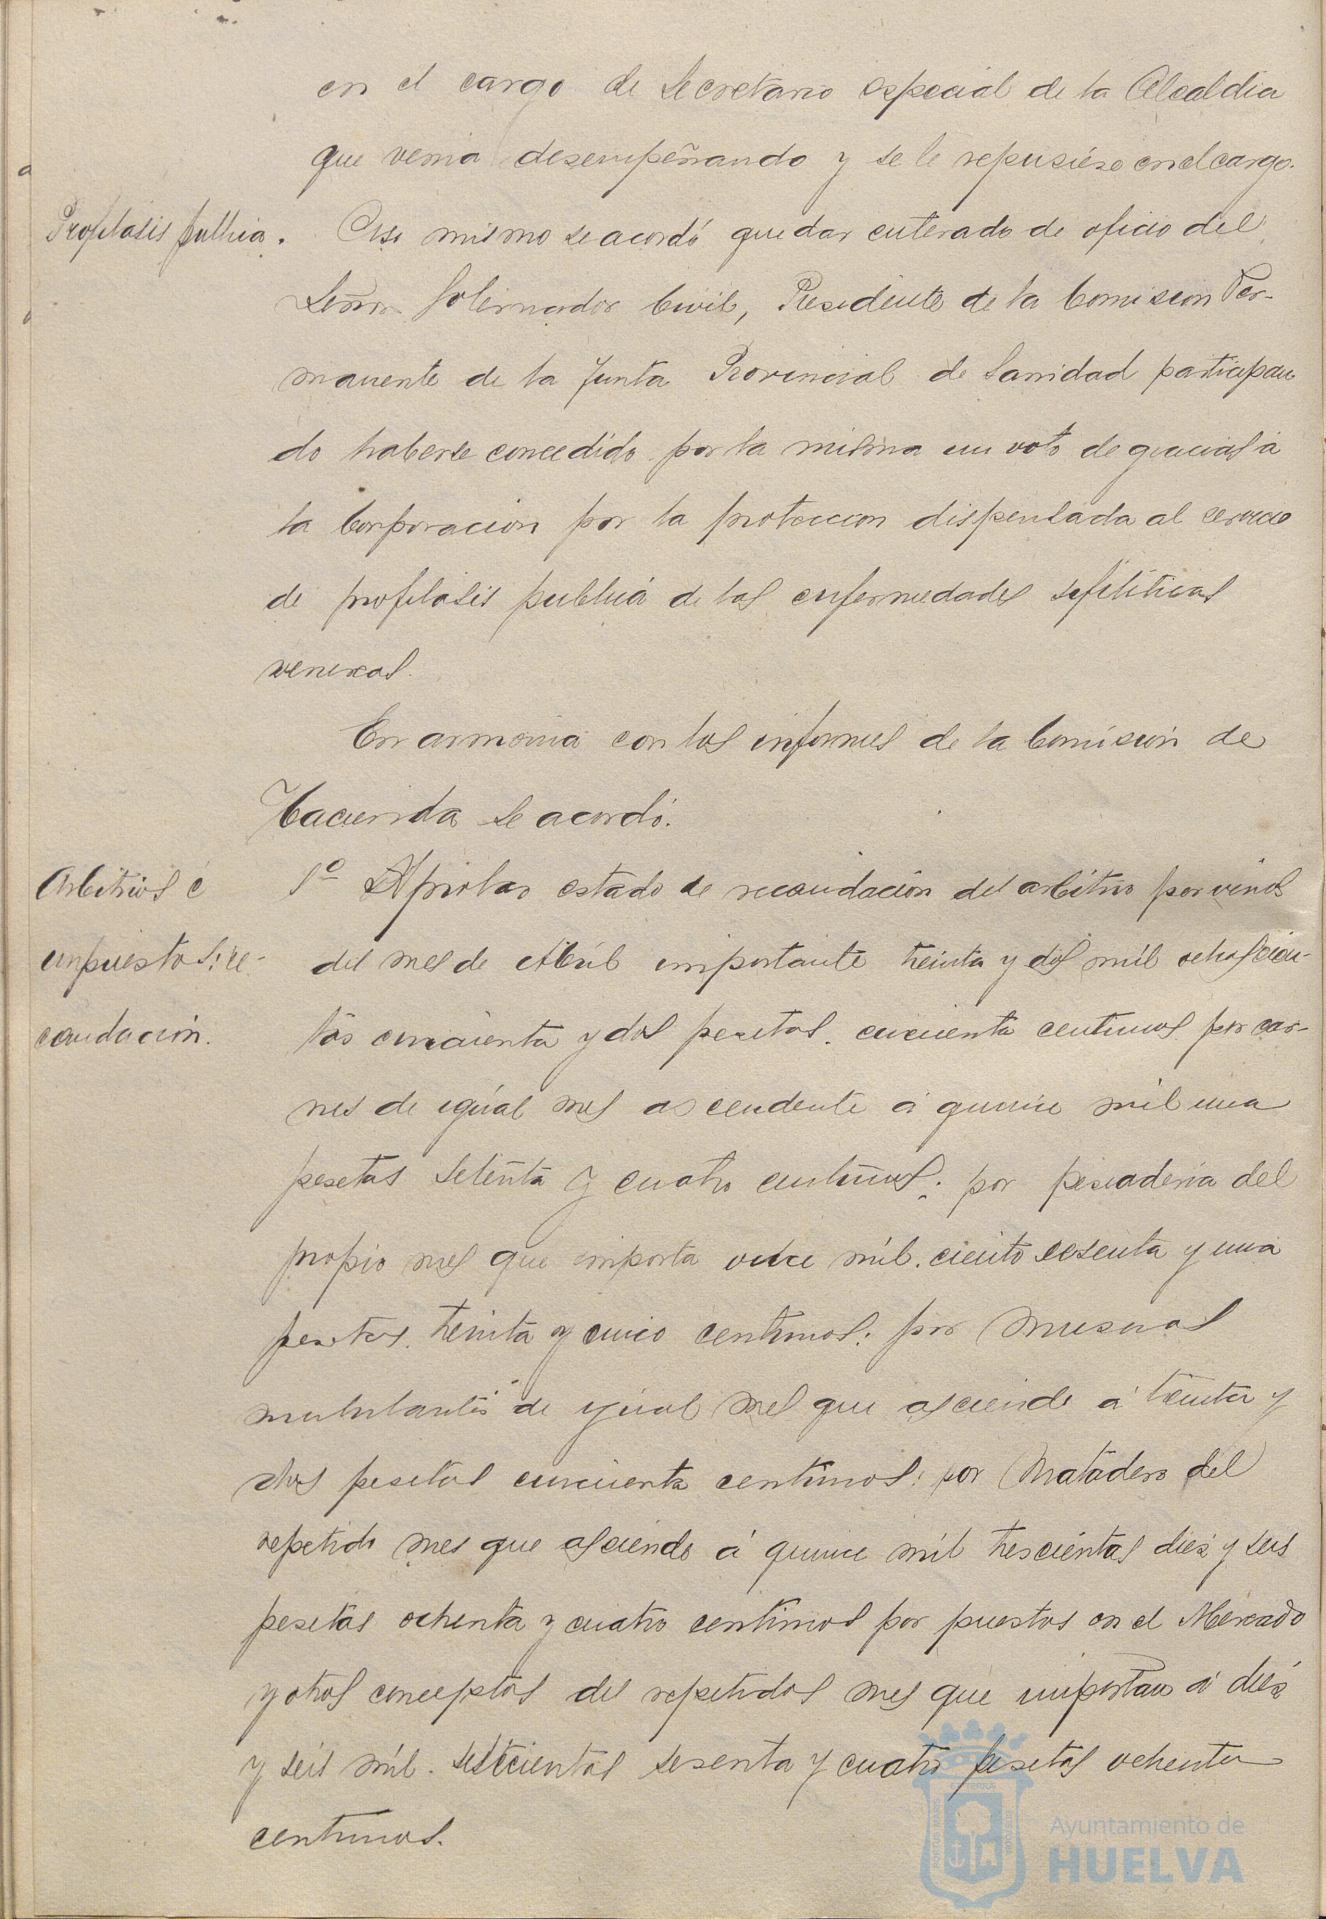 en el cargo de Secretario especial de la Alcaldia
que venia desempeñando y se le repusiese en el cargo.
Profilasis publica.
Asi mismo se acordó quedar enterado de oficio del
Señor Gobernador Civil, Presidente de la Comision Per-
manente de la Junta Provincial de Sanidad participan
do haberse concedido por la misma un voto de gracias á
la Corporacion por la proteccion dispensada al servicio
de profilasis publica de las enfermedades sifiliticas
venereas.
En armonia con los informes de la Comisión de
Hacienda se acordó.
Arbitrios é
impuestos: re-
caudación.
1º Aprobar estado de recaudación del arbitrio por vinos
del mes de Abril importante treinta y dos mil ochoscien-
tas cincuenta y dos pesetas cincuenta centimos por car-
nes de igual mes ascendente á quince mil una
pesetas setenta y cuatro centimos; por pescaderia del
propio mes que importa once mil ciento sesenta y una
pesetas treinta y cinco centimos; por Musicas
de igual mes que asciende á treinta y
dos pesetas cincuenta centimos; por Matadero del
repetido mes que asciende á quince mil trescientas diez y seis
pesetas ochenta y cuatro centimos por puestos en el Mercado
y otros conceptos del repetidos mes que importan á diez
y seis mil setecientas sesenta y cuatro pesetas ochenta
centimos.
Ayuntamiento de
HUELVA